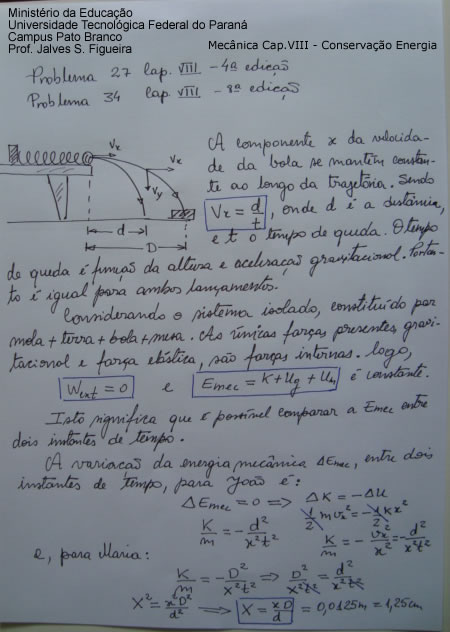 Ministério da Educação
Universidade Tecnológica Federal do Paraná
Campus Pato Branco
Prof. Jalves S. Figueira
Mecânica Cap.VIII - Conservação Energia
Problema 27 Cap. VIII - 4ª edição
Problema 34 Cap. VIII - 8ª edição
Vx
Vx
Vy
d
D
A componente x da velocida-
de da bola se mantém constan-
te ao longo da trajetória. Sendo
Vx = d/t, onde d é a distância,
e t o tempo de queda. O tempo
de queda é função da altura e aceleração gravitacional. Portan-
to é igual para ambos lançamentos.
Considerando o sistema isolado, constituído por
mola + terra + bola + mesa. As únicas forças presentes, gravi-
tacional e força elástica, são forças internas. Logo,
Wext = 0 e Emec = K + Ug + Um é constante.
Isto significa que é possível comparar a Emec entre
dois instantes de tempo.
A variação da energia mecânica ΔEmec, entre dois
instantes de tempo, para João é:
ΔEmec = 0 => ΔK = -ΔU
1/2 mvx² = -1/2 kx²
K/m = -d²/x²t²
K/m = -vx²/x² = -d²/x²t²
e, para Maria:
K/m = -D²/X²t² => D²/X²t² = d²/x²t²
X² = x²D²/d² => X = xD/d = 0,0125m = 1,25cm